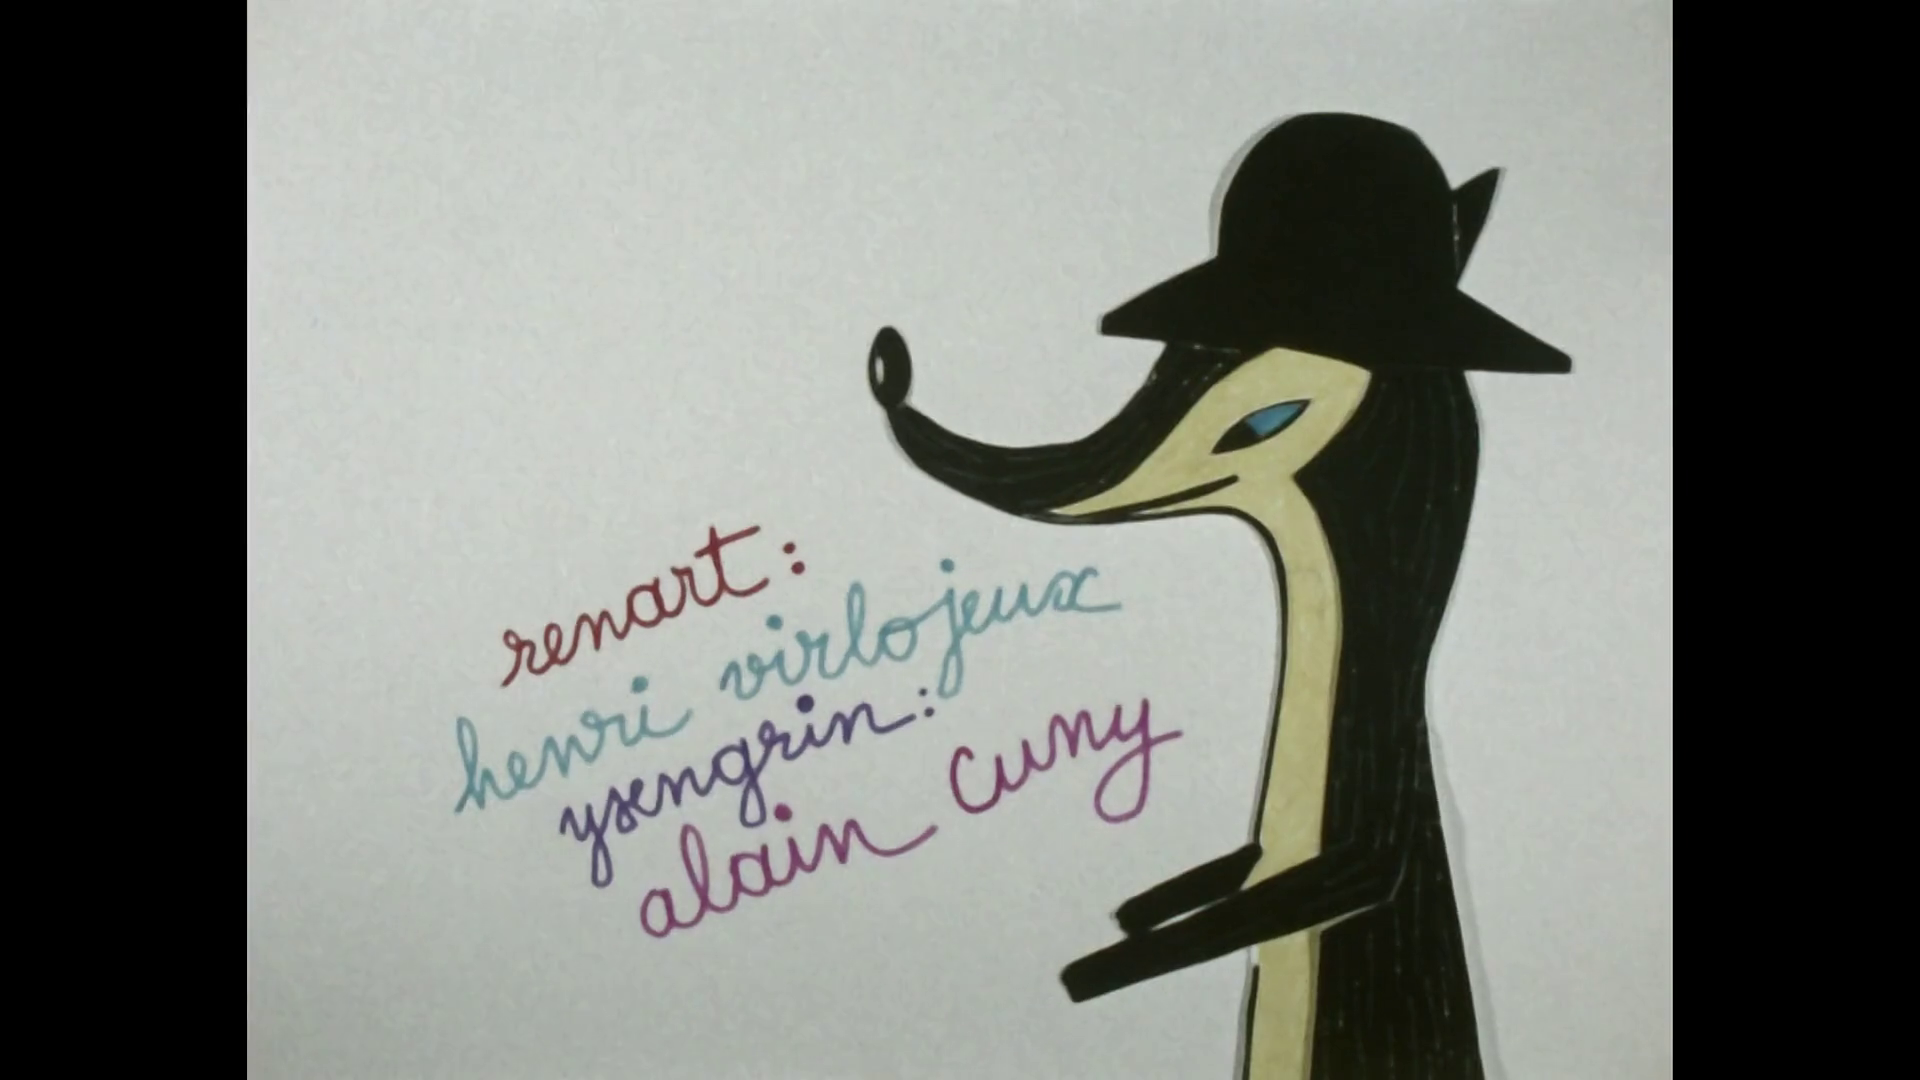 renart :
henri virlojeux
ysengrin :
alain cuny